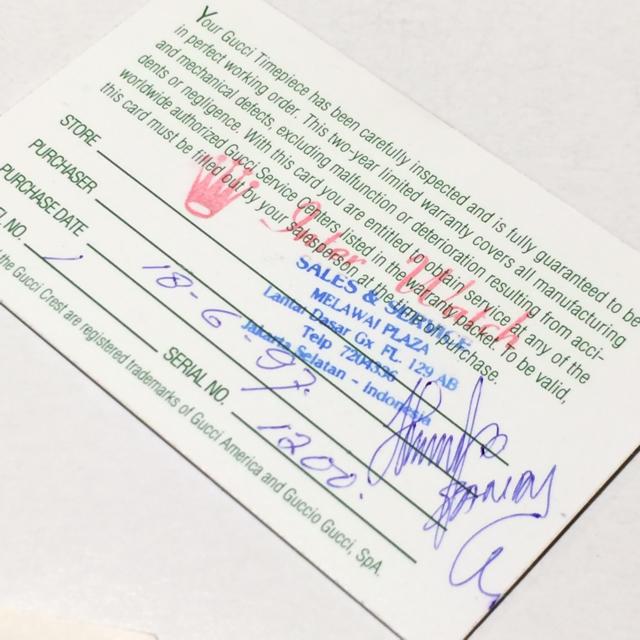 Your Gucci Timepiece has been carefully inspected and is fully guaranteed to be
in perfect working order. This two-year limited warranty covers all manufacturing
and mechanical defects, excluding malfunction or deterioration resulting from acci-
dents or negligence. With this card you are entitled to obtain service at any of the
worldwide authorized Gucci Service Centers listed in the warranty booklet. To be valid,
this card must be filled out by your salesperson at the time of purchase.
Inter Watch
SALES & SERVICE
MELAWAI PLAZA
Lantai Dasar Gx FL. 129 AB
Telp 7204336
Jakarta Selatan - Indonesia
STORE
PURCHASER
PURCHASE DATE 18-6-97.
NO.
SERIAL NO. 1200.
the Gucci Crest are registered trademarks of Gucci America and Guccio Gucci, SpA.